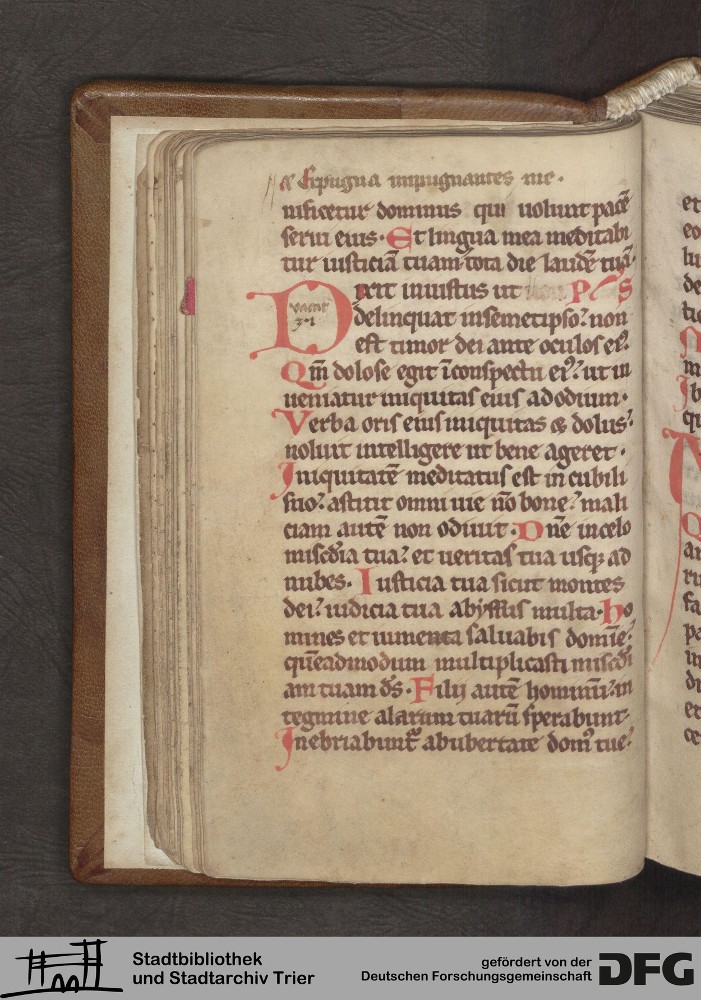 & Expugna impugnantes me.
nificetur dominus qui uolunt pacē
serui eius. Et lingua mea meditabi
tur iusticiā tuam tota die laudē tuā.
Dixit iniustus ut PS
delinquat insemetipso: non
est timor dei ante oculos eiꝰ.
Qm̄ dolose egit ī conspectu eiꝰ: ut in
ueniatur iniquitas eius ad odium.
Verba oris eius iniquitas & dolus:
noluit intelligere ut bene ageret.
Iniquitatē meditatus est in cubili
suo: astitit omni uie nō bone: mali
ciam autē non odiuit. Dn̄e in celo
miscd̄ia tua: et ueritas tua usq; ad
nubes. Iusticia tua sicut montes
dei: iudicia tua abyssus multa. ho
mines et iumenta saluabis domīe:
quēadmodum multiplicasti miscd̄i
am tuam d̄s. Filij autē hominū: in
tegmine alarum tuarū sperabunt.
Inebriabunt᷑ ab ubertate domꝰ tue:
et
Stadtbibliothek
und Stadtarchiv Trier
gefördert von der
Deutschen Forschungsgemeinschaft
DFG